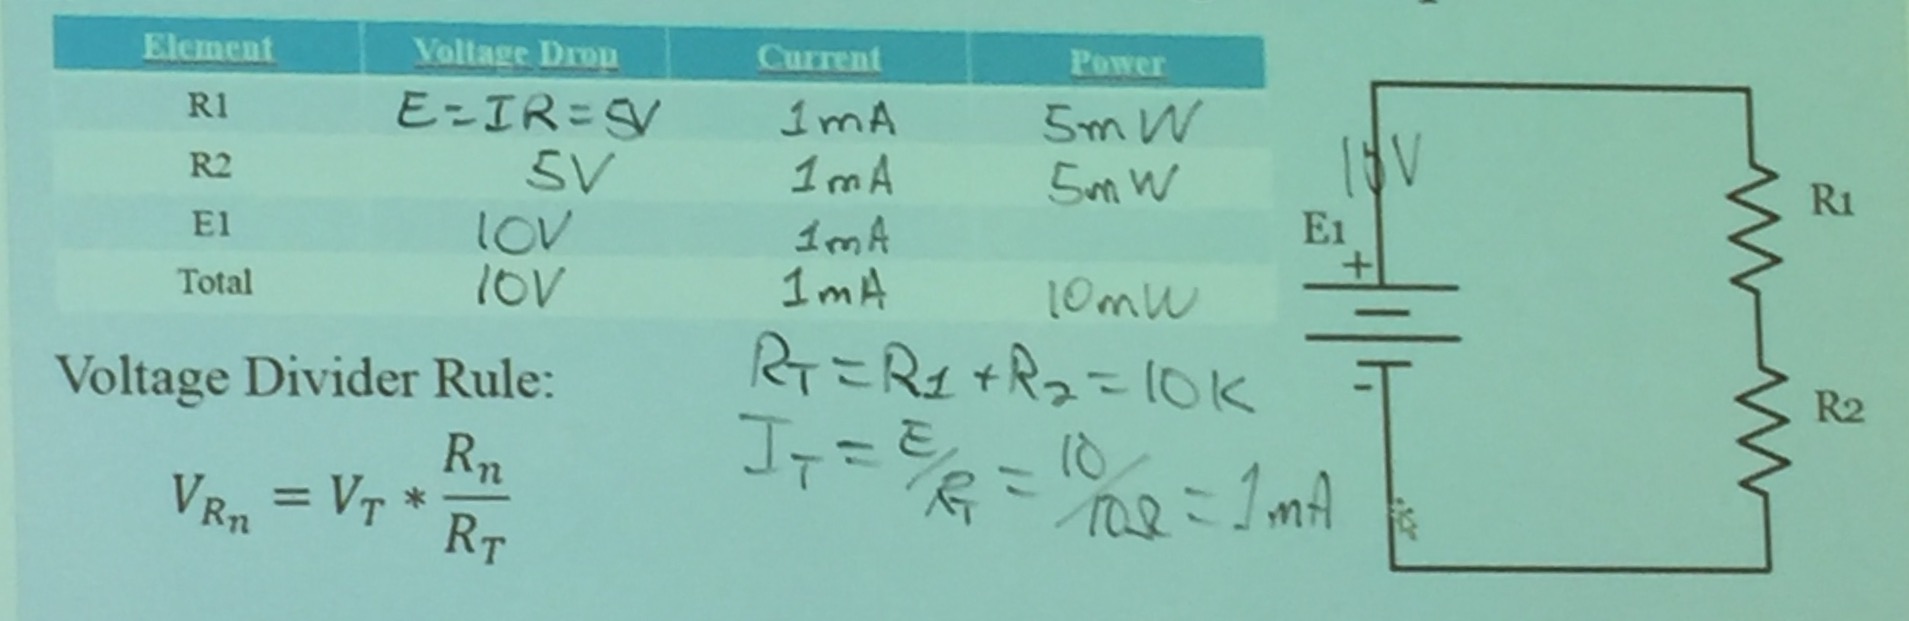 Element Voltage Drop Current Power
R1 E=IR=5V 1mA 5mW
R2 5V 1mA 5mW
E1 10V 1mA
Total 10V 1mA 10mW
10V
E1
+
-
R1
R2
Voltage Divider Rule:
V_{R_n} = V_T * \frac{R_n}{R_T}
R_T = R_1 + R_2 = 10K
I_T = E/R_T = 10/10Ω = 1mA